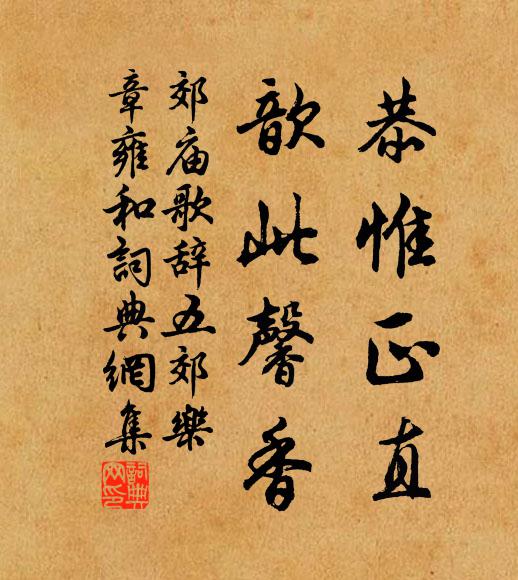 恭惟正直
歆此馨香
郊庙歌辞五郊樂
章雍和詞典網集
詞典网印